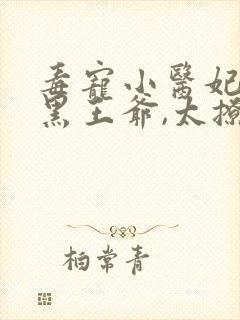 毒寵小醫妃
黑王爺,太撩
柏常青